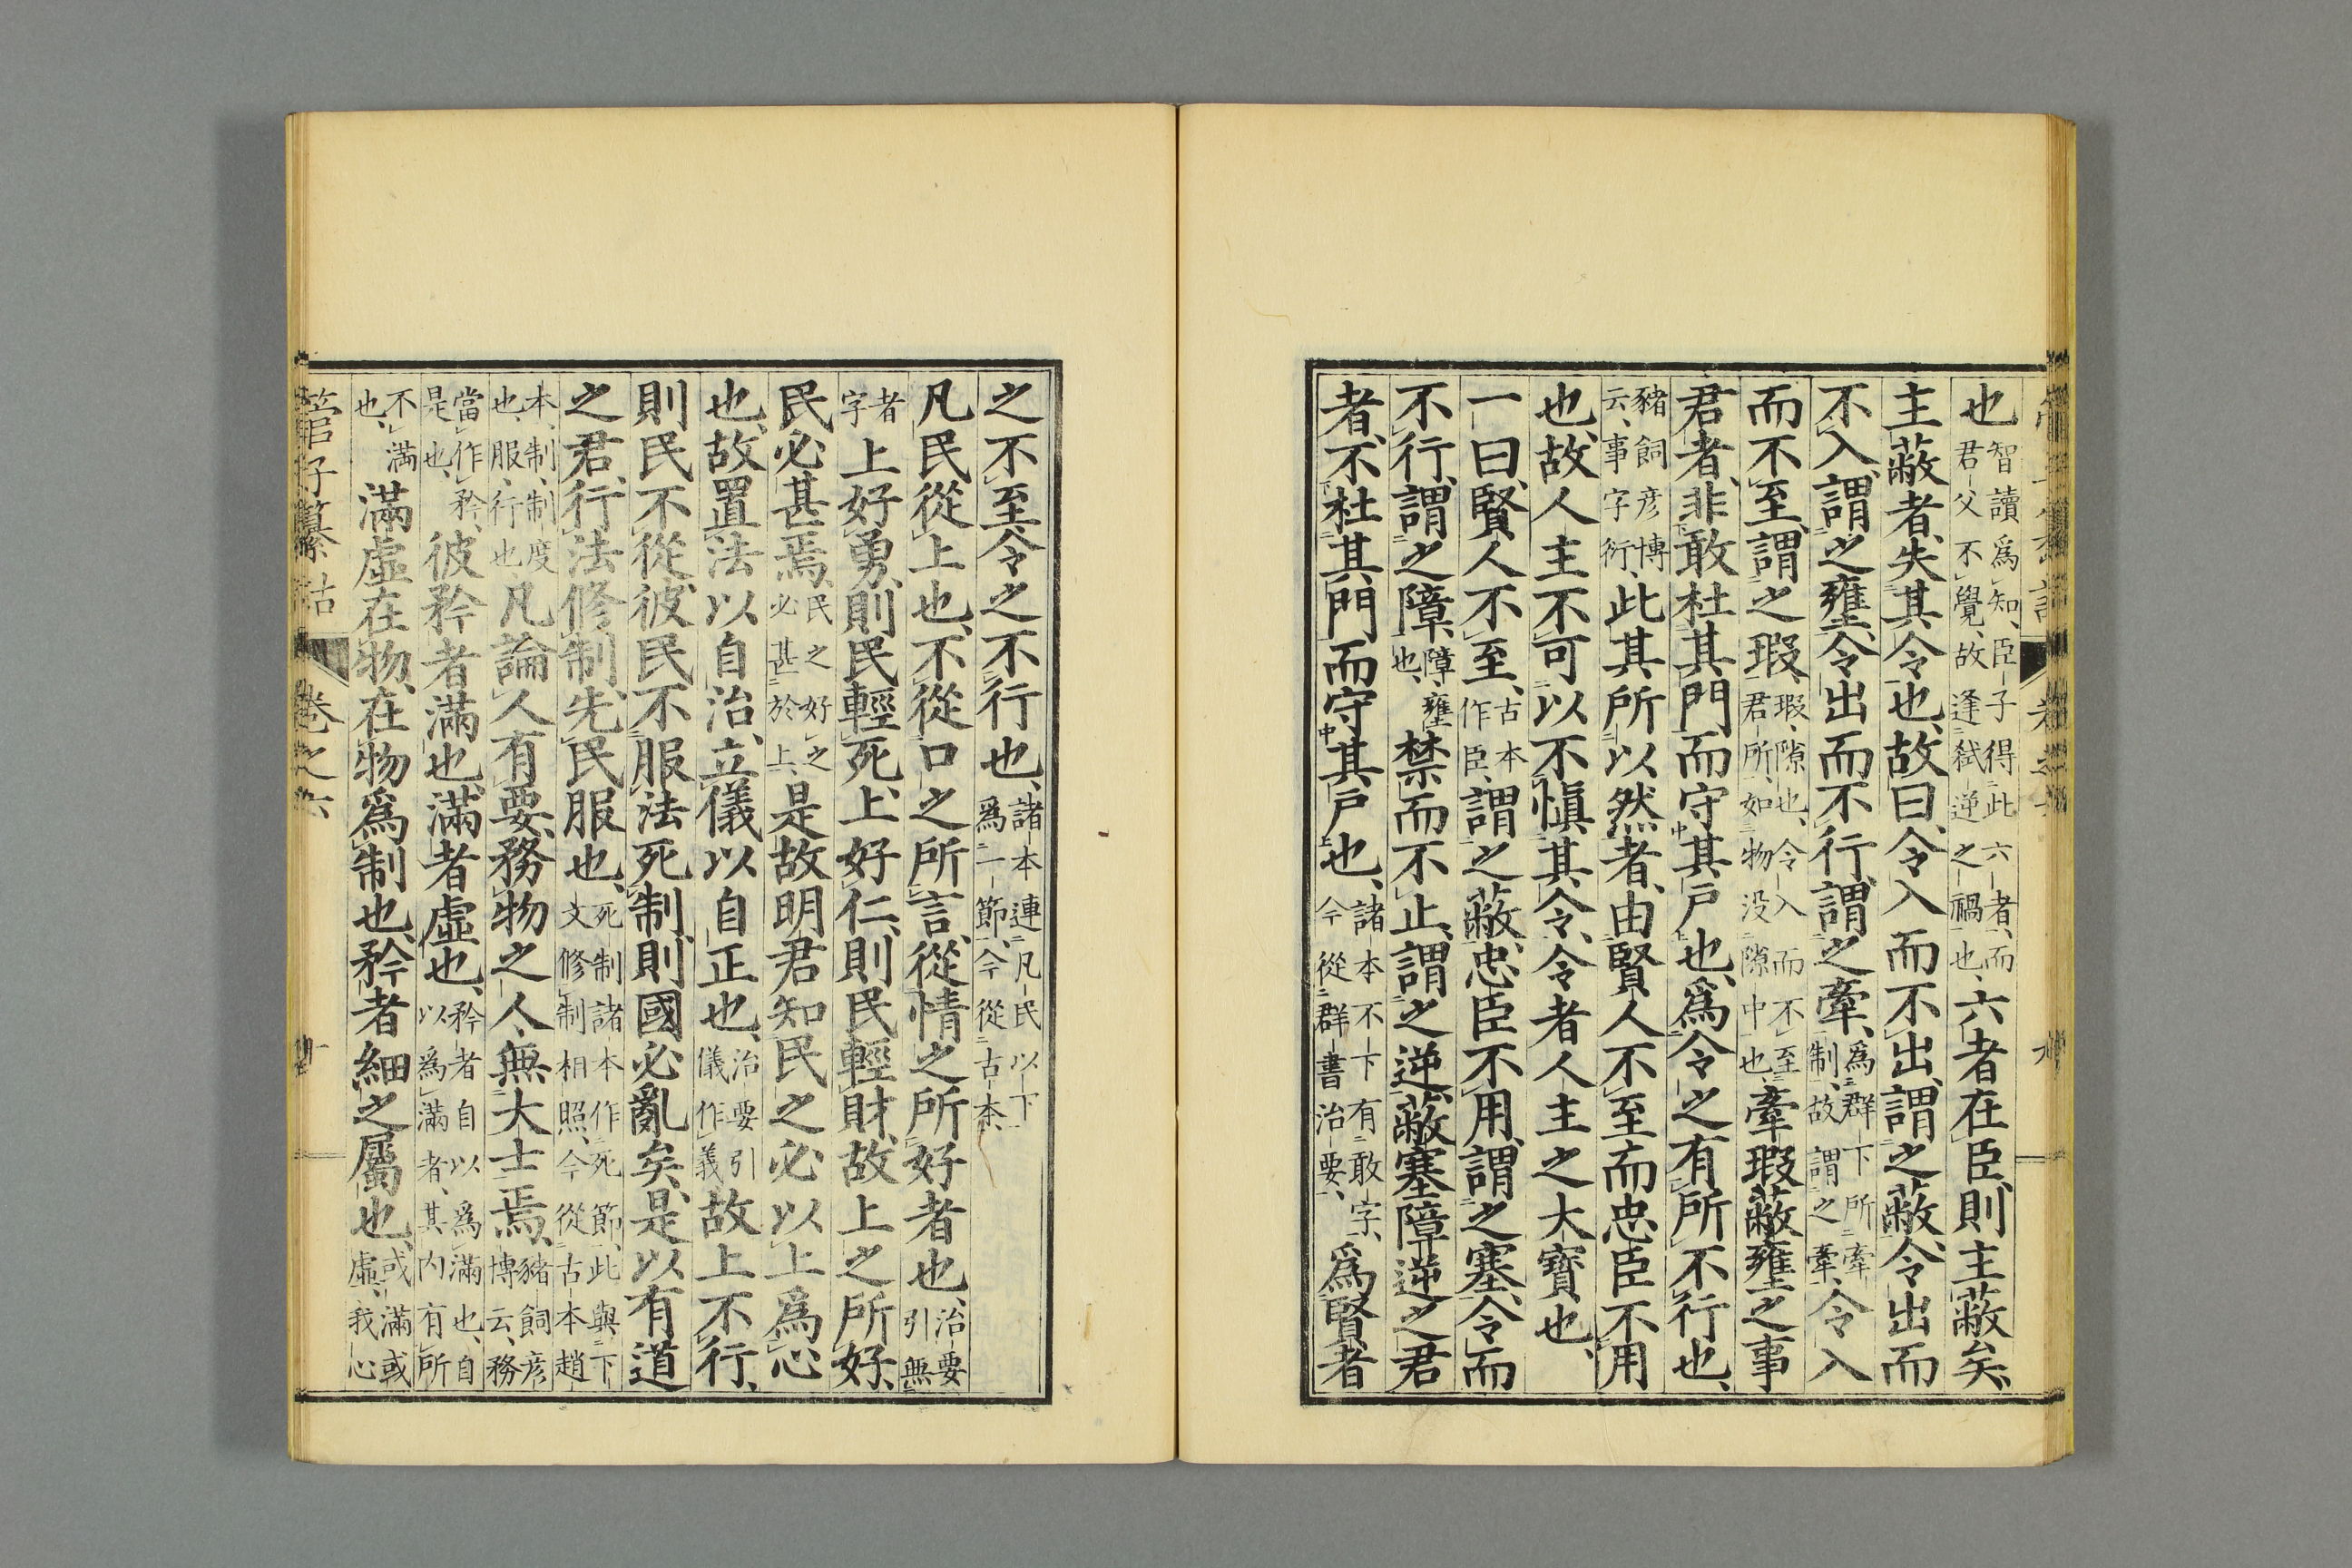 也智讀爲知、臣子得此六者、而君父不覺、故逢弑逆之禍也、六者在臣、則主蔽矣、
主蔽者、失其令也、故曰、令入而不出、謂之蔽、令出而
不入、謂之壅、令出而不行、謂之牽、爲群下所牽制、故謂之牽、令入
而不至、謂之瑕、瑕、隙也、令入而不至君所、如物没隙中也、牽瑕蔽壅之事
君者、非敢杜其門而守其戸也、爲令之有所不行也、
豬飼彦博云、事字衍、此其所以然者、由賢人不至而忠臣不用
也、故人主不可以不愼其令、令者人主之大寶也、
一曰、賢人不至、古本作臣、謂之蔽、忠臣不用、謂之塞、令而
不行、謂之障、障、壅也、禁而不止、謂之逆、蔽塞障逆之君
者、不杜其門而守其戸也、諸本不下有敢字、今從群書治要、爲賢者
之不至、令之不行也、諸本連凡民以下爲一節、今從古本、
凡民從上也、不從口之所言、從情之所好者也、治要引無
者字上好勇、則民輕死、上好仁、則民輕財、故上之所好、
民必甚焉、民之好之必甚於上、是故明君知民之必以上爲心
也、故置法以自治、立儀以自正也、治要引儀作義故上不行、
則民不從、彼民不服法死制、則國必亂矣、是以有道
之君、行法修制、先民服也、死制諸本作死節、此與下文修制相照、今從古本趙
本、制、制度也、服、行也、凡論人有要、務物之人、無大士焉、豬飼彦博云、務
當作矜、是也、彼矜者滿也、滿者虛也、矜者自以爲滿也、自以爲滿者、其内有所
不滿也、滿虛在物、在物爲制也、矜者細之屬也、或滿或虛、我心
管子纂詁　卷之六